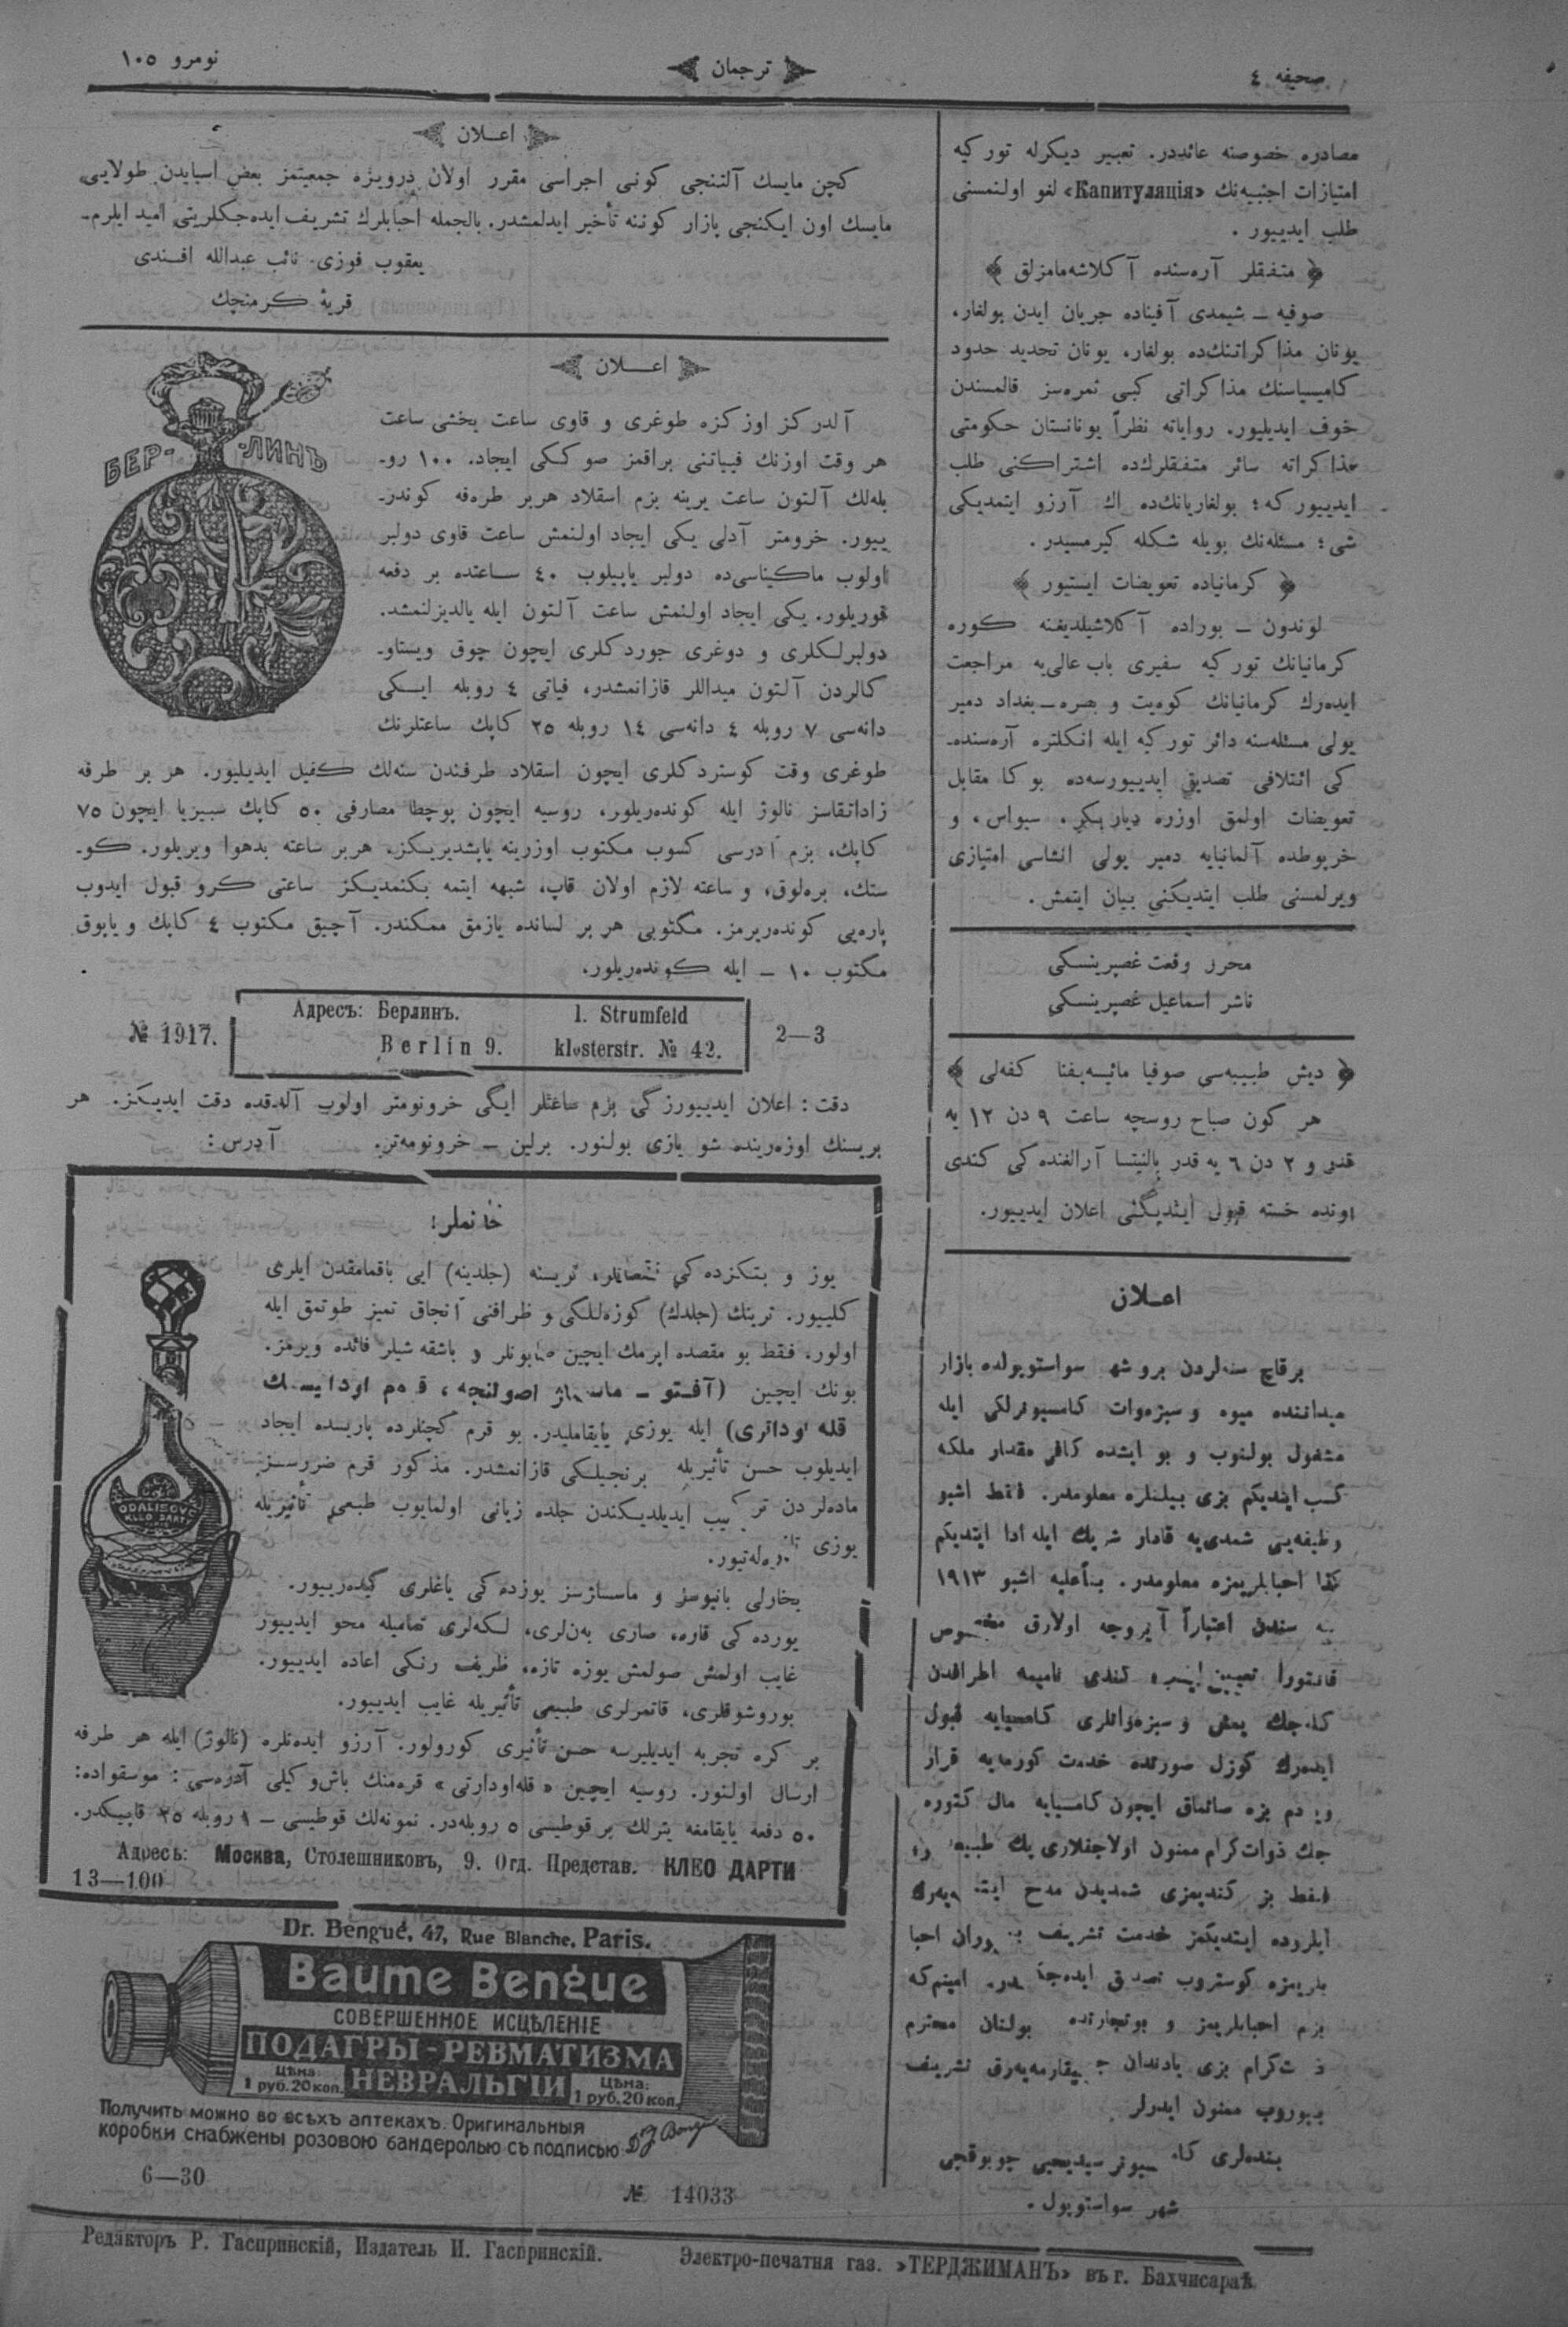 صحیفه ٤
ترجمان
نومرو ١٠٥
مصادره خصوصنه عائددر. تعبیر دیكرله توركیه
امتیازات اجنبیه‌نك «Капитуляція» لغو اولنمسنی
طلب ایدییور .
متفقلر آره‌سنده آكلاشه‌مامزلق
صوفیه ــ شیمدی آفیناده جریان ایدن بولغار،
یونان مذاكراتنك‌ده بولغار، یونان تحدید حدود
كامیسیاسنك مذاكراتی كبی ثمره‌سز قالمسندن
خوف ایدیلیور. روایاته نظراً یونانستان حكومتی
مذاكراته سائر متفقلرك‌ده اشتراكنی طلب
ایدییوركه ؛ بولغاریانك‌ده اك آرزو ایتمدیكی
شی ؛ مسئله‌نك بویله شكله كیرمسیدر .
كرمانیاده تعویضات ایستیور
لوندون ــ بوراده آكلاشیلدیغنه كوره
كرمانیانك توركیه سفیری باب عالی‌یه مراجعت
ایده‌رك كرمانیانك كوەیت و بصره ــ بغداد دمیر
یولی مسئله‌سنه دائر توركیه ایله انكلتره آره‌سنده‌ـ
كی ائتلافی تصدیق ایدییورسه‌ده بوكا مقابل
تعویضات اولمق اوزره دیاربكر، سیواس، و
خربوطده آلمانیایه دمیر یولی انشاسی امتیازی
ویرلمسنی طلب ایتدیكنی بیان ایتمش .
محرر رفعت غصپرینسكی
ناشر اسماعیل غصپرینسكی
دیش طبیبه‌سی صوفیا مائیسەیفنا كفه‌لی
هر كون صباح روسچه ساعت ٩ دن ١٢ یه
قدر و ٢ دن ٦ یه قدر بالنیتسا آرالغنده‌كی كندی
اونده خسته قبول ایتدیكنی اعلان ایدییور.
اعـلان
برقاچ سنه‌لردن برو شهر سواستوپولده بازار
میداننده میوه و سبزه‌وات كامسیونرلكی ایله
مشغول بولنوب و بو ایشده كافی مقدار ملكه
كسب ایتدیكم بزی بیلنلره معلومدر. فقط اشبو
وظیفه‌یی شمدی‌یه قادار شریك ایله ادا ایتدیكم
كذا احبابلریمزه معلومدر. بناعلیه اشبو ١٩١٣
سندن اعتباراً آیروجه اولارق مخصوص
قانتورا تعیین كندی نامیمه اطرافدن
كله‌جك یمش و سبزه‌واتلری كامسیایه قبول
ایده‌رك كوزل صورتده خدمت كورمایه قرار
ویردم بزه صاتماق ایچون كامسیایه مال كتوره
جك ذوات كرام ممنون اولاجقلاری پك طبیعی
فقط بز كندیمزی شمدیدن مدح
ایلروده ایتدیكمز خدمت تشریف احبا
بلریمزه كوستروب تصدیق ایده‌جكدر. امینم‌كه
بزم احبابلریمز و بوتجارتده بولنان محترم
كرام بزی یادندان چیقارمه‌یه‌رق تشریف
بیوروب ممنون ایدرلر
بنده‌لری سیدیحیی چوبوقچی
شهر سواستوپول .
اعـلان
كچن مایسك آلتنجی كونی اجراسی مقرر اولان درویزه جمعیتمز بعض اسبابدن طولایی
مایسك اون ایكنجی بازار كوننه تأخیر ایدلمشدر. بالجمله احبابلرك تشریف ایده‌جكلریتی امید ایلرم‌ـ
یعقوب فوزی. نائب عبدالله افندی
قریهٔ كرمنچك
اعـلان
БЕР- -ЛИНЪ
آلدركز اوزكزه طوغری و قاوی ساعت یخشی ساعت
هر وقت اوزنك فیباتنی براقمز صوككی ایجاد. ١٠٠ رو‌ـ
بله‌لك آلتون ساعت یرینه بزم اسقلاد هربر طرەفه كوندر‌ـ
ییور. خرومتر آدلی یكی ایجاد اولنمش ساعت قاوی دولبر
اولوب ماكیناسی‌ده دولبر یاپیلوب ٤٠ ساعتده بر دفعه
قوریلور. یكی ایجاد اولنمش ساعت آلتون ایله یالدیزلنمشد.
دولبرلكلری و دوغری جوردكلری ایچون چوق ویستاو‌ـ
كالردن آلتون میداللر قازانمشدر، فیاتی ٤ روبله ایكی
دانه‌سی ٧ روبله ٤ دانه‌سی ١٤ روبله ٢٥ كاپك ساعتلرنك
طوغری وقت كوستردكلری ایچون اسقلاد طرفندن سنه‌لك كفیل ایدیلیور. هر بر طرفه
زاداتقاسز نالوژ ایله كونده‌ریلور، روسیه ایچون پوچطا مصارفی ٥٠ كاپك سیبریا ایچون ٧٥
كاپك، بزم آدرسی كسوب مكتوب اوزرینه یاپشدیریكز. هربر ساعته بدهوا ویریلور. كو‌ـ
ستك، بره‌لوق، و ساعته لازم اولان قاپ، شبهه ایتمه بكنمدیكز ساعتی كرو قبول ایدوب
پاره‌یی كونده‌ریرمز. مكتوبی هر بر لسانده یازمق ممكندر. آچیق مكتوب ٤ كاپك و یاپوق
مكتوب ١٠ ــ ایله كونده‌ریلور.
№ 1917.
Адресъ: Берлинъ. I. Strumfeld
Berlin 9. klosterstr. № 42.
2—3
دقت : اعلان ایدییورزكی بزم ساعتلر ایكی خرونومتر اولوب آلەقده دقت ایدیكز. هر
بریسنك اوزه‌رینده شو یازی بولنور. برلین ــ خرونومەتر. آدرس :
خانملر!
یوز و بتكزده‌كی نقصانلر، تریسنه (جلدینه) ایی باقمامقدن ایلری
كلییور. ترینك (جلدك) كوزه‌للكی و ظرافتی آنجاق تمیز طوتمق ایله
اولور. فقط بو مقصده ایرمك ایچین صابونلر و باشقه شیلر فائده ویرمز.
بونك ایچین (آفتو ــ ماساژ اصولنجه، قرەم اودالیسك
قله‌اودارتی) ایله یوزی یایقاملیدر. بو قرم كچنلرده پاریسده ایجاد
ایدیلوب حسن تأثیریله برنجیلكی قازانمشدر. مذكور قرم ضررسز
ماده‌لردن تركیب ایدیلدیكندن جلده زیانی اولمایوب طبعی تأثیریله
یوزی تازه‌له‌تیور.
بخارلی بانیوسز و ماسساژسز یوزده‌كی یاغلری كیده‌رییور.
یورده‌كی قاره، صاری بەن‌لری، لكه‌لری تمامیله محو ایدییور
غایب اولمش صولمش یوزه تازه، ظریف رنكی اعاده ایدییور.
بوروشوقلری، قاتمرلری طبیعی تأثیریله غایب ایدییور.
بر كره تجربه ایدیلیرسه حسن تأثیری كورولور. آرزو ایده‌نلره (نالوژ) ایله هر طرفه
ارسال اولنور. روسیه ایچین «قله‌اودارتی» قرەمنك باش‌وكیلی آدره‌سی : موسقواده:
٥٠ دفعه یایقامغه یترلك بر قوطیسی ٥ روبله‌در. نمونه‌لك قوطیسی ــ ١ روبله ٢٥ قاپیكدر.
Адресь: Москва, Столешниковъ, 9. Отд. Представ. КЛЕО ДАРТИ
13—100
ODALISQUE
KLEO DARTY
Dr. Bengué, 47, Rue Blanche, Paris.
Baume Bengue
СОВЕРШЕННОЕ ИСЦѢЛЕНІЕ
ПОДАГРЫ-РЕВМАТИЗМА
Цѣна: 1 руб. 20 коп. НЕВРАЛЬГІИ Цѣна: 1 руб. 20 коп.
Получить можно во всѣхъ аптекахъ. Оригинальныя
коробки снабжены розовою бандеролью съ подписью Dr Bengué
6—30
№ 14033
Редакторъ Р. Гаспринскій, Издатель И. Гаспринскій.
Электро-печатня газ. »ТЕРДЖИМАНЪ» въ г. Бахчисараѣ